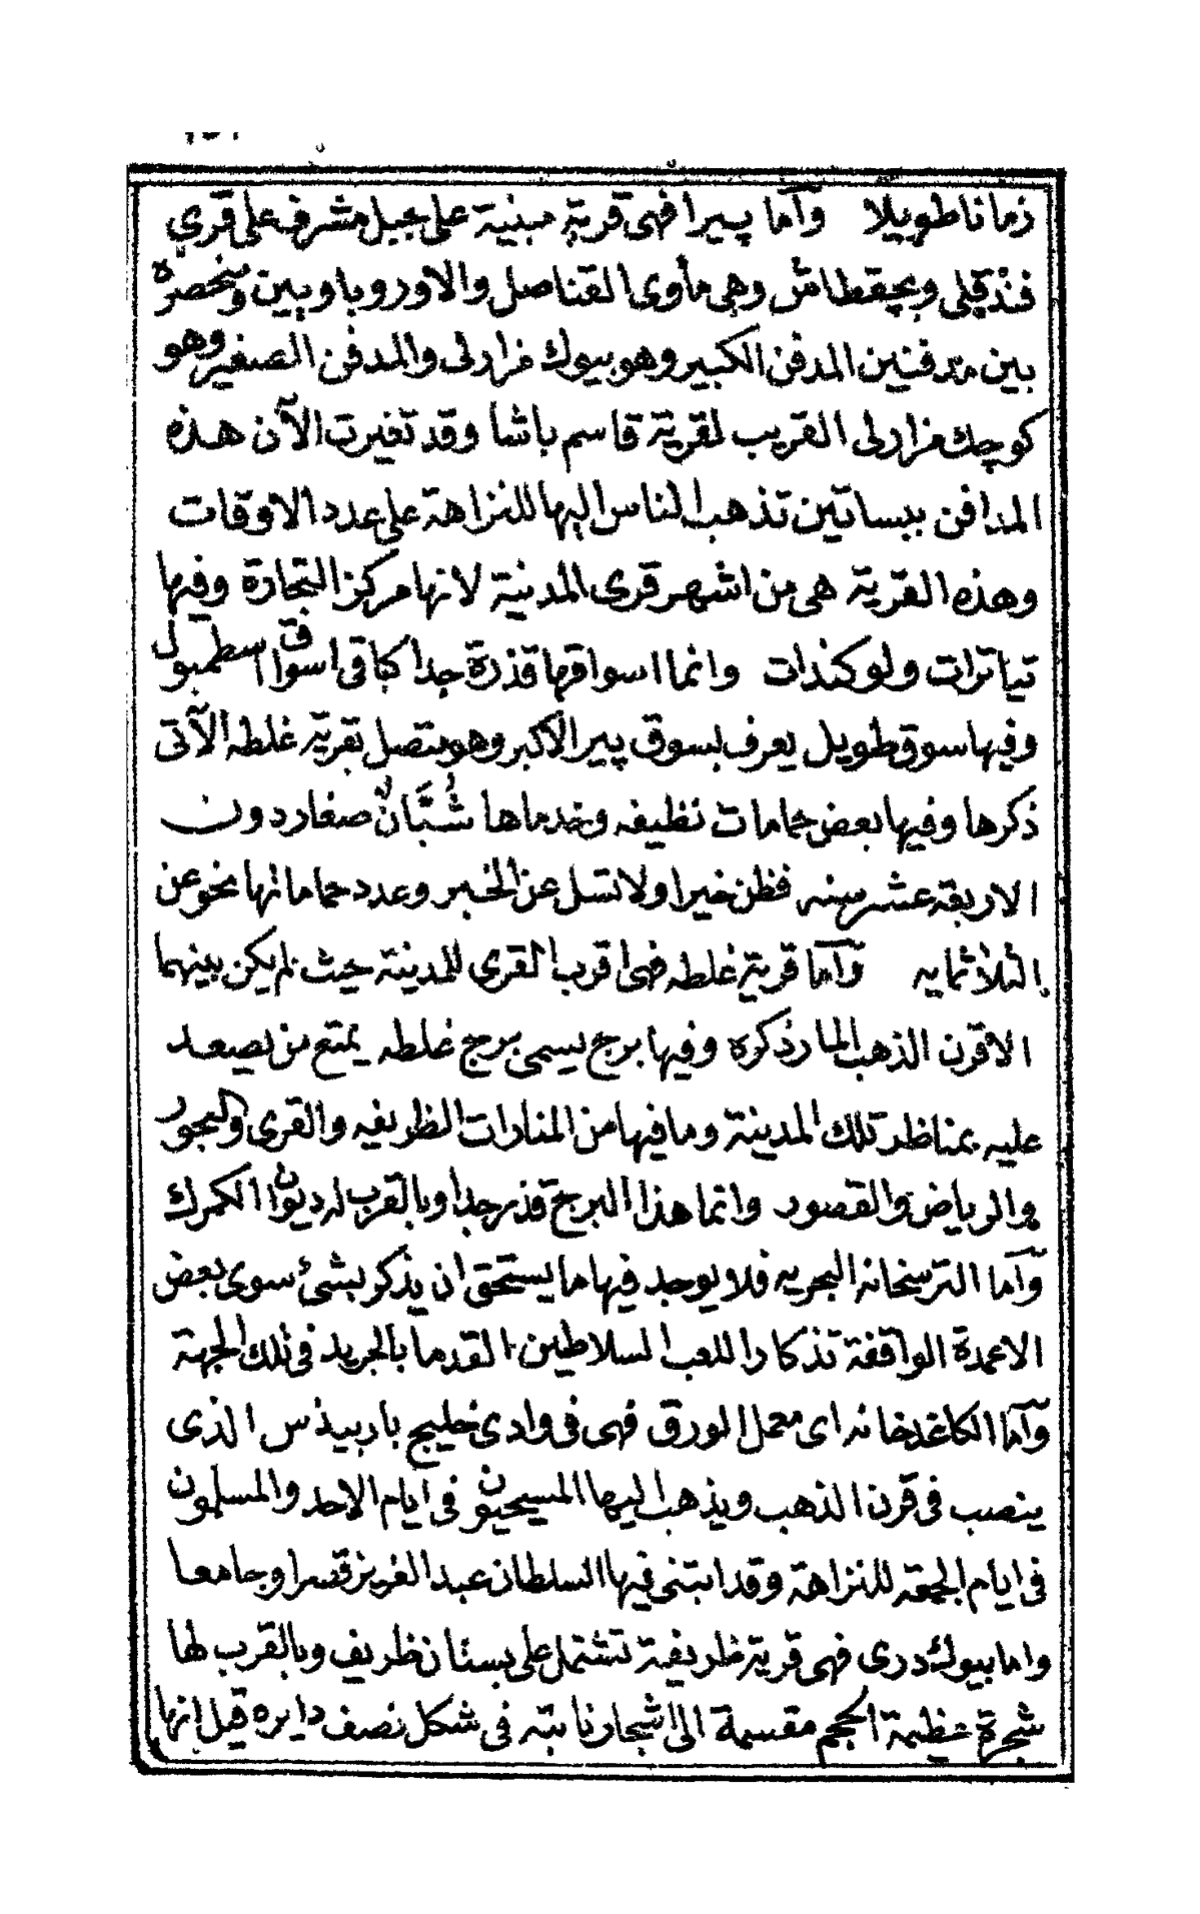 زمانا طويلا وآما پيرا فهى قرية مبنية على جبل مشرف على قري
فندقلى وبجقطاش وهى مأوى القناصل والاوروپاويين ومنحصره
بين مدفنين المدفن الكبير وهو بيوك مزارلى والمدفن الصغير وهو
كوچك مزارلى القريب لقرية قاسم باشا وقد تغيرت الآن هذه
المدافن ببساتين تذهب الناس اليها للنزاهة على عدد الاوقات
وهذه القرية هى من اشهر قرى المدنية لانها مركز التجارة وفيها
تياترات ولوكندات وانما اسواقها قذرة جدا كباقى اسواق اسطمبول
وفيها سوق طويل يعرف بسوق پيرا الاكبر وهو متصل بقرية غلطه الآتى
ذكرها وفيها بعض حمامات نظيفه وخدماها شُبَّانٌ صغار دون
الاربعة عشر سنه فظن خيرا ولا تسل عن الخبر وعدد حماماتها نحو عن
الثلاثمايه وآما قرية غلطه فهى اقرب القرى للمدينة حيث لم يكن بينهما
الا قرن الذهب المار ذكره وفيها برج يسمى برج غلطه يمتع من يصعد
عليه بمناظر تلك المدينة وما فيها من المنارات الظريفه والقرى والبحور
والرياض والقصور وانما هذا البرج قذر جدا وبالقرب له ديوان الكمرك
وآما الترسخانه البحريه فلا يوجد فيها ما يستحق ان يذكر بشئ سوى بعض
الاعمدة الواقفة تذكارا للعب السلاطين القدما بالجريد فى تلك الجهة
وآما الكاغدخانه اى معمل الورق فهى فى وادى خليج باربيذس الذى
ينصب فى قرن الذهب ويذهب اليها المسيحيون فى ايام الاحد والمسلمون
فى ايام الجمعة للنزاهة وقد ابتنى فيها السلطان عبد العزيز قصرا وجامعا
واما بيوك درى فهى قرية ظريفة تشتمل على بستان ظريف وبالقرب لها
شجرة عظيمة الحجم مقسمة الى اشجار نابته فى شكل نصف دايره قيل انها